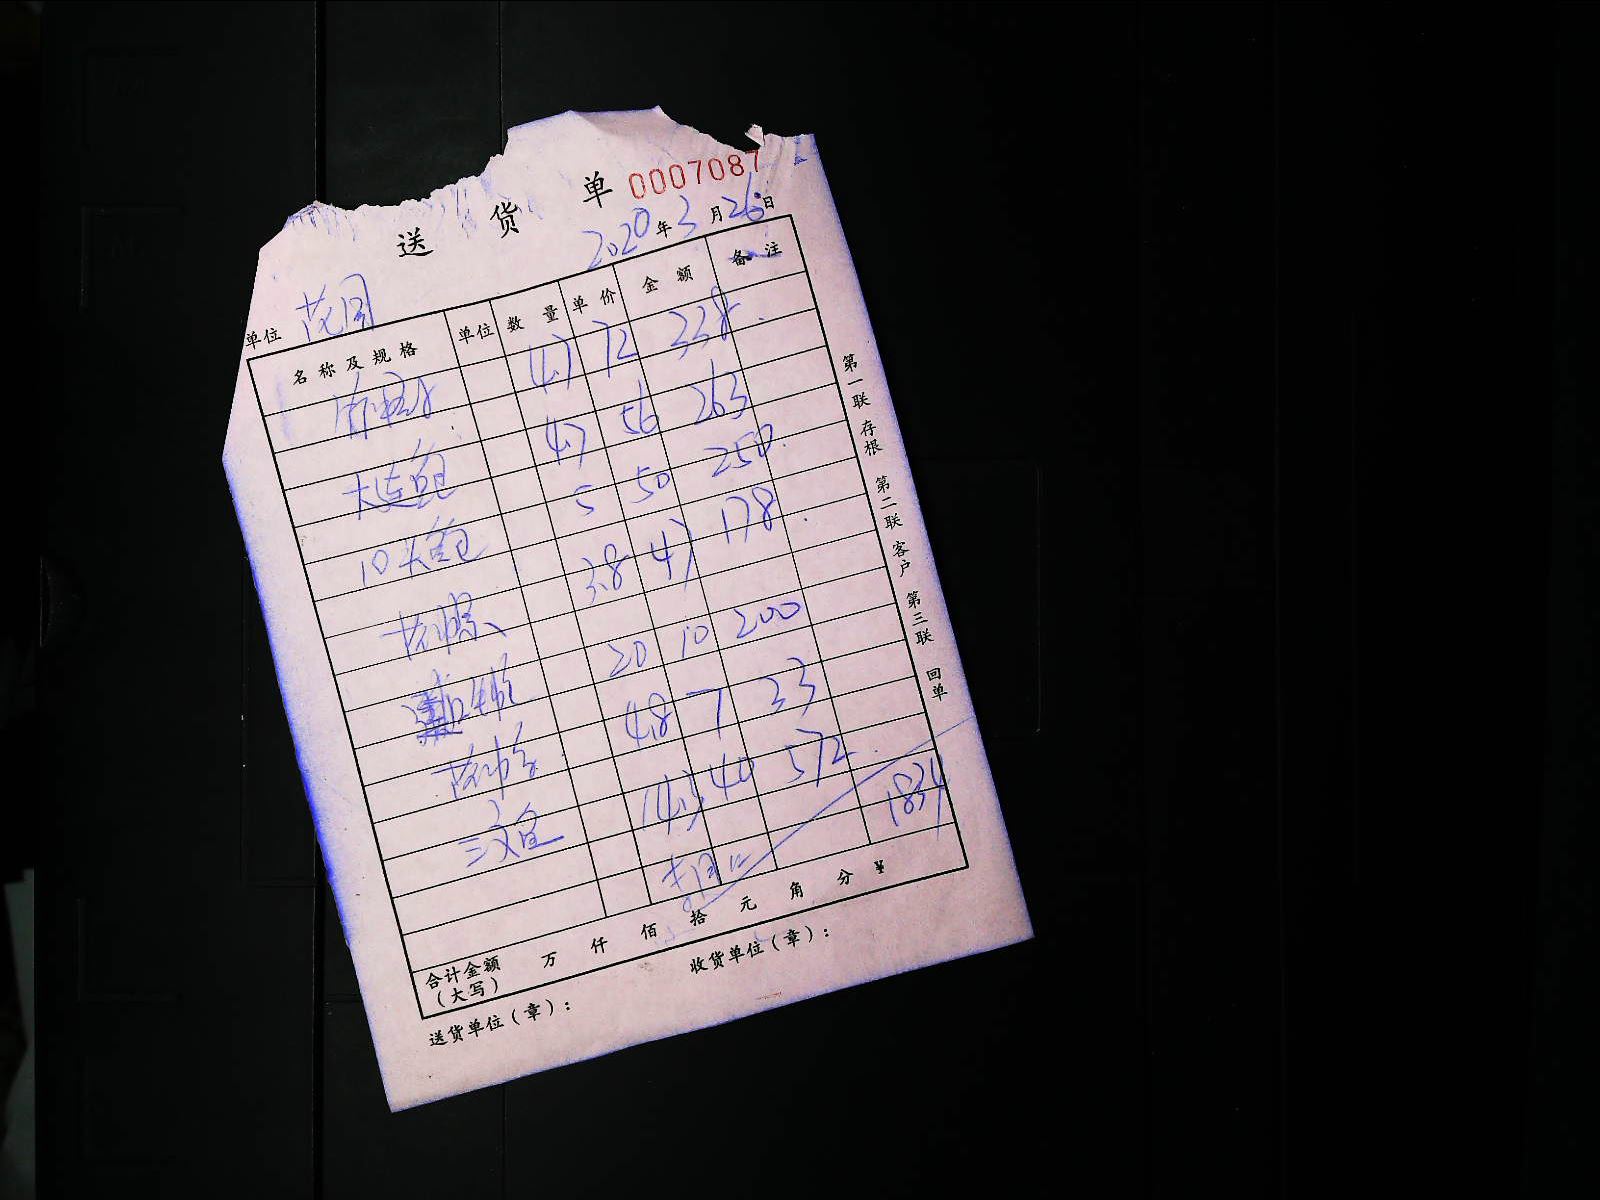 送货单 0007087
2020年3月26日
单位 花园
名称及规格 单位 数量 单价 金额 备注
4.7 72 338
大连鲍 4.7 56 263
10头鲍 5 50 250
3.8 47 178
20 10 200
4.8 7 33
三文鱼 14.3 40 572
1834
合计金额(大写) 万 仟 佰 拾 元 角 分 ¥
送货单位(章): 收货单位(章):
第一联 存根 第二联 客户 第三联 回单